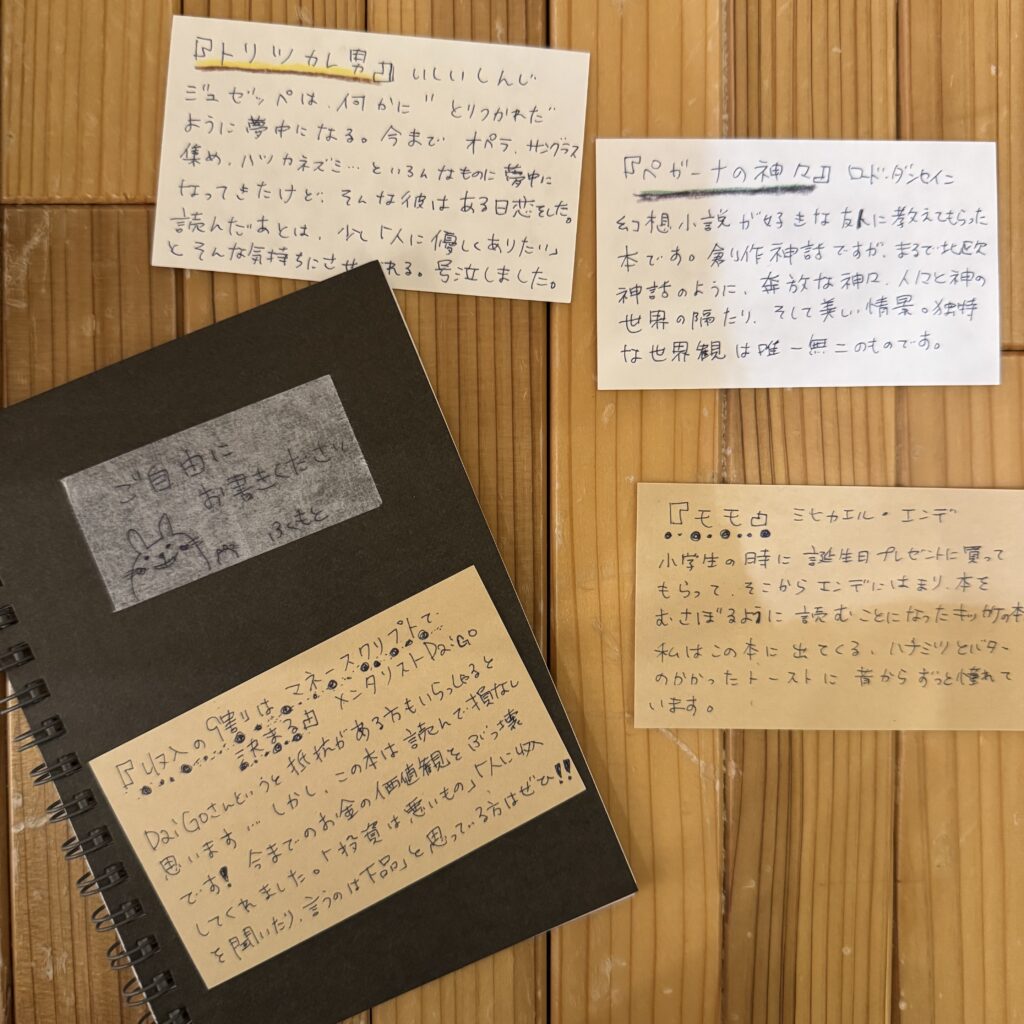 『トリツカレ男』 いしいしんじ
ジュゼッペは、何かに"とりつかれた"
ように夢中になる。今まで オペラ、サングラス
集め、ハツカネズミ…といろんなものに夢中に
なってきたけど、そんな彼はある日恋をした。
読んだあとは、少し「人に優しくありたい」
とそんな気持ちにさせ れる。号泣しました。
『ペガーナの神々』 ロード・ダンセイニ
幻想小説が好きな友人に教えてもらった
本です。創作神話ですが、まるで北欧
神話のように、奔放な神々、人々と神の
世界の隔たり、そして美しい情景。独特
な世界観は唯一無二のものです。
ご自由に
お書きください
ふくもと
『モモ』 ミヒャエル・エンデ
小学生の時に誕生日プレゼントに買って
もらって、そこからエンデにはまり、本を
むさぼるように読むことになったキッカケの本
私はこの本に出てくる、ハチミツとバター
のかかったトーストに昔からずっと憧れて
います。
『収入の9割はマネースクリプトで
決まる』 メンタリストDaiGo
DaiGoさんというと抵抗がある方もいらっしゃると
思います… しかし、この本は読んで損なし
です! 今までのお金の価値観をぶっ壊
してくれました。「投資は悪いもの」「人に収入
を聞いたり、言うのは下品」と思っている方はぜひ!!